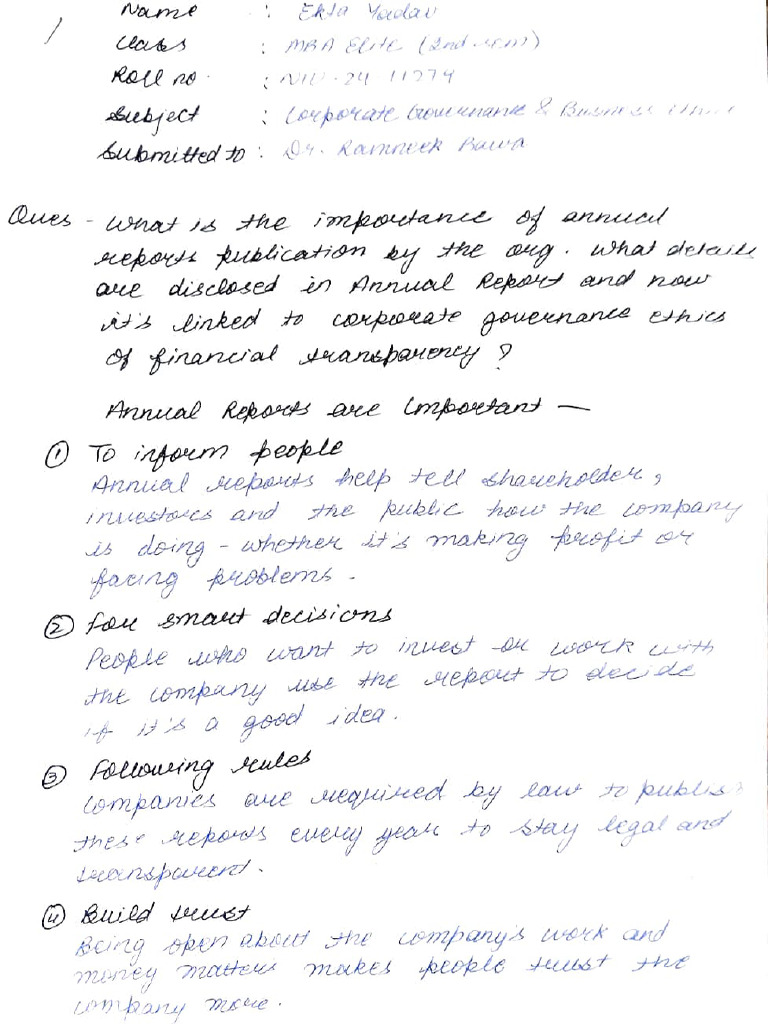 Name : Ekta Yadav
Class : MBA Elite (2nd sem)
Roll no. : NIU-24-11774
Subject : Corporate Governance & Business
Submitted to : Dr. Ramneek Bawa
Ques - What is the importance of annual
reports publication by the org. What details
are disclosed in Annual Report and how
it's linked to corporate governance ethics
of financial transparency ?
Annual Reports are Important —
① To inform people
Annual reports help tell shareholder,
investors and the public how the company
is doing - whether it's making profit or
facing problems.
② For smart decisions
People who want to invest or work with
the company use the report to decide
if it's a good idea.
③ Following rules
Companies are required by law to publish
these reports every year to stay legal and
transparent.
④ Build trust
Being open about the company's work and
money matters makes people trust the
company more.